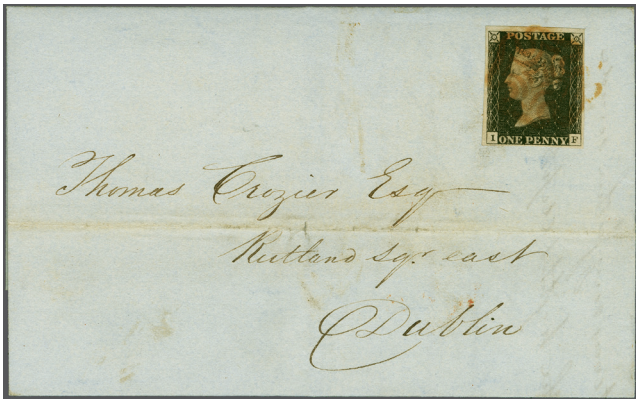 POSTAGE
I F
ONE PENNY
Thomas Crozier Esqr
Rutland Sqr. east
Dublin